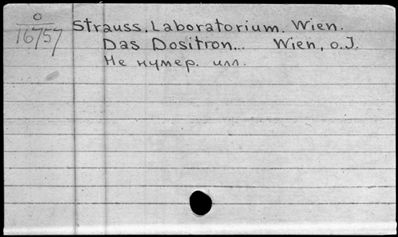 O
16757
Strauss. Laboratorium. Wien.
Das Dositron... Wien, o.J.
Не нумер. илл.